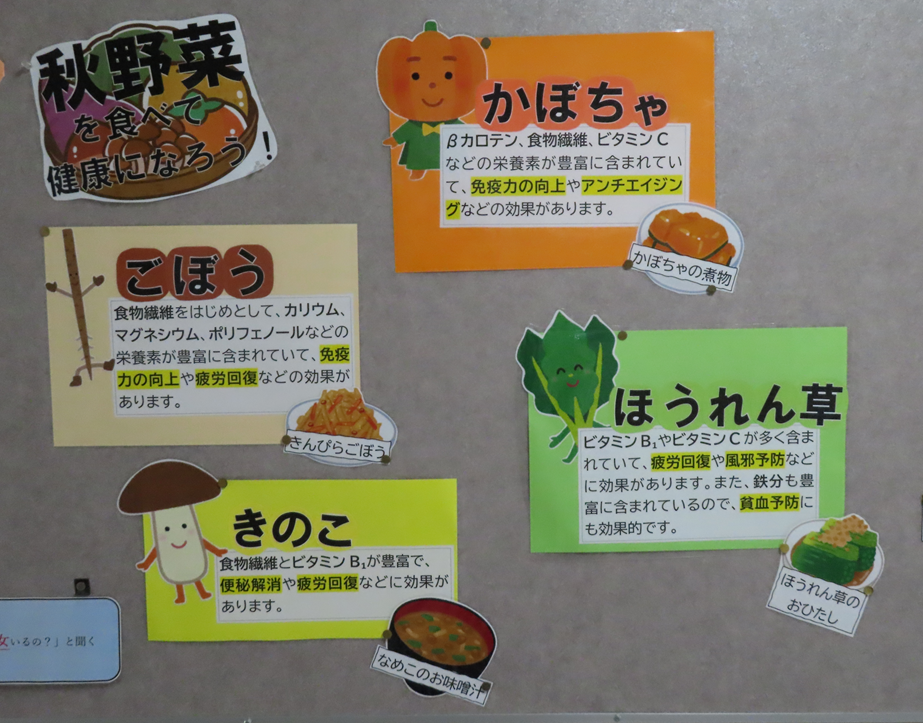 秋野菜
を食べて
健康になろう！
かぼちゃ
βカロテン、食物繊維、ビタミンC
などの栄養素が豊富に含まれてい
て、免疫力の向上やアンチエイジン
グなどの効果があります。
かぼちゃの煮物
ごぼう
食物繊維をはじめとして、カリウム、
マグネシウム、ポリフェノールなどの
栄養素が豊富に含まれていて、免疫
力の向上や疲労回復などの効果が
あります。
きんぴらごぼう
ほうれん草
ビタミンB₁やビタミンCが多く含ま
れていて、疲労回復や風邪予防など
に効果があります。また、鉄分も豊
富に含まれているので、貧血予防に
も効果的です。
ほうれん草の
おひたし
きのこ
食物繊維とビタミンB₁が豊富で、
便秘解消や疲労回復などに効果が
あります。
なめこのお味噌汁
いるの？」と聞く